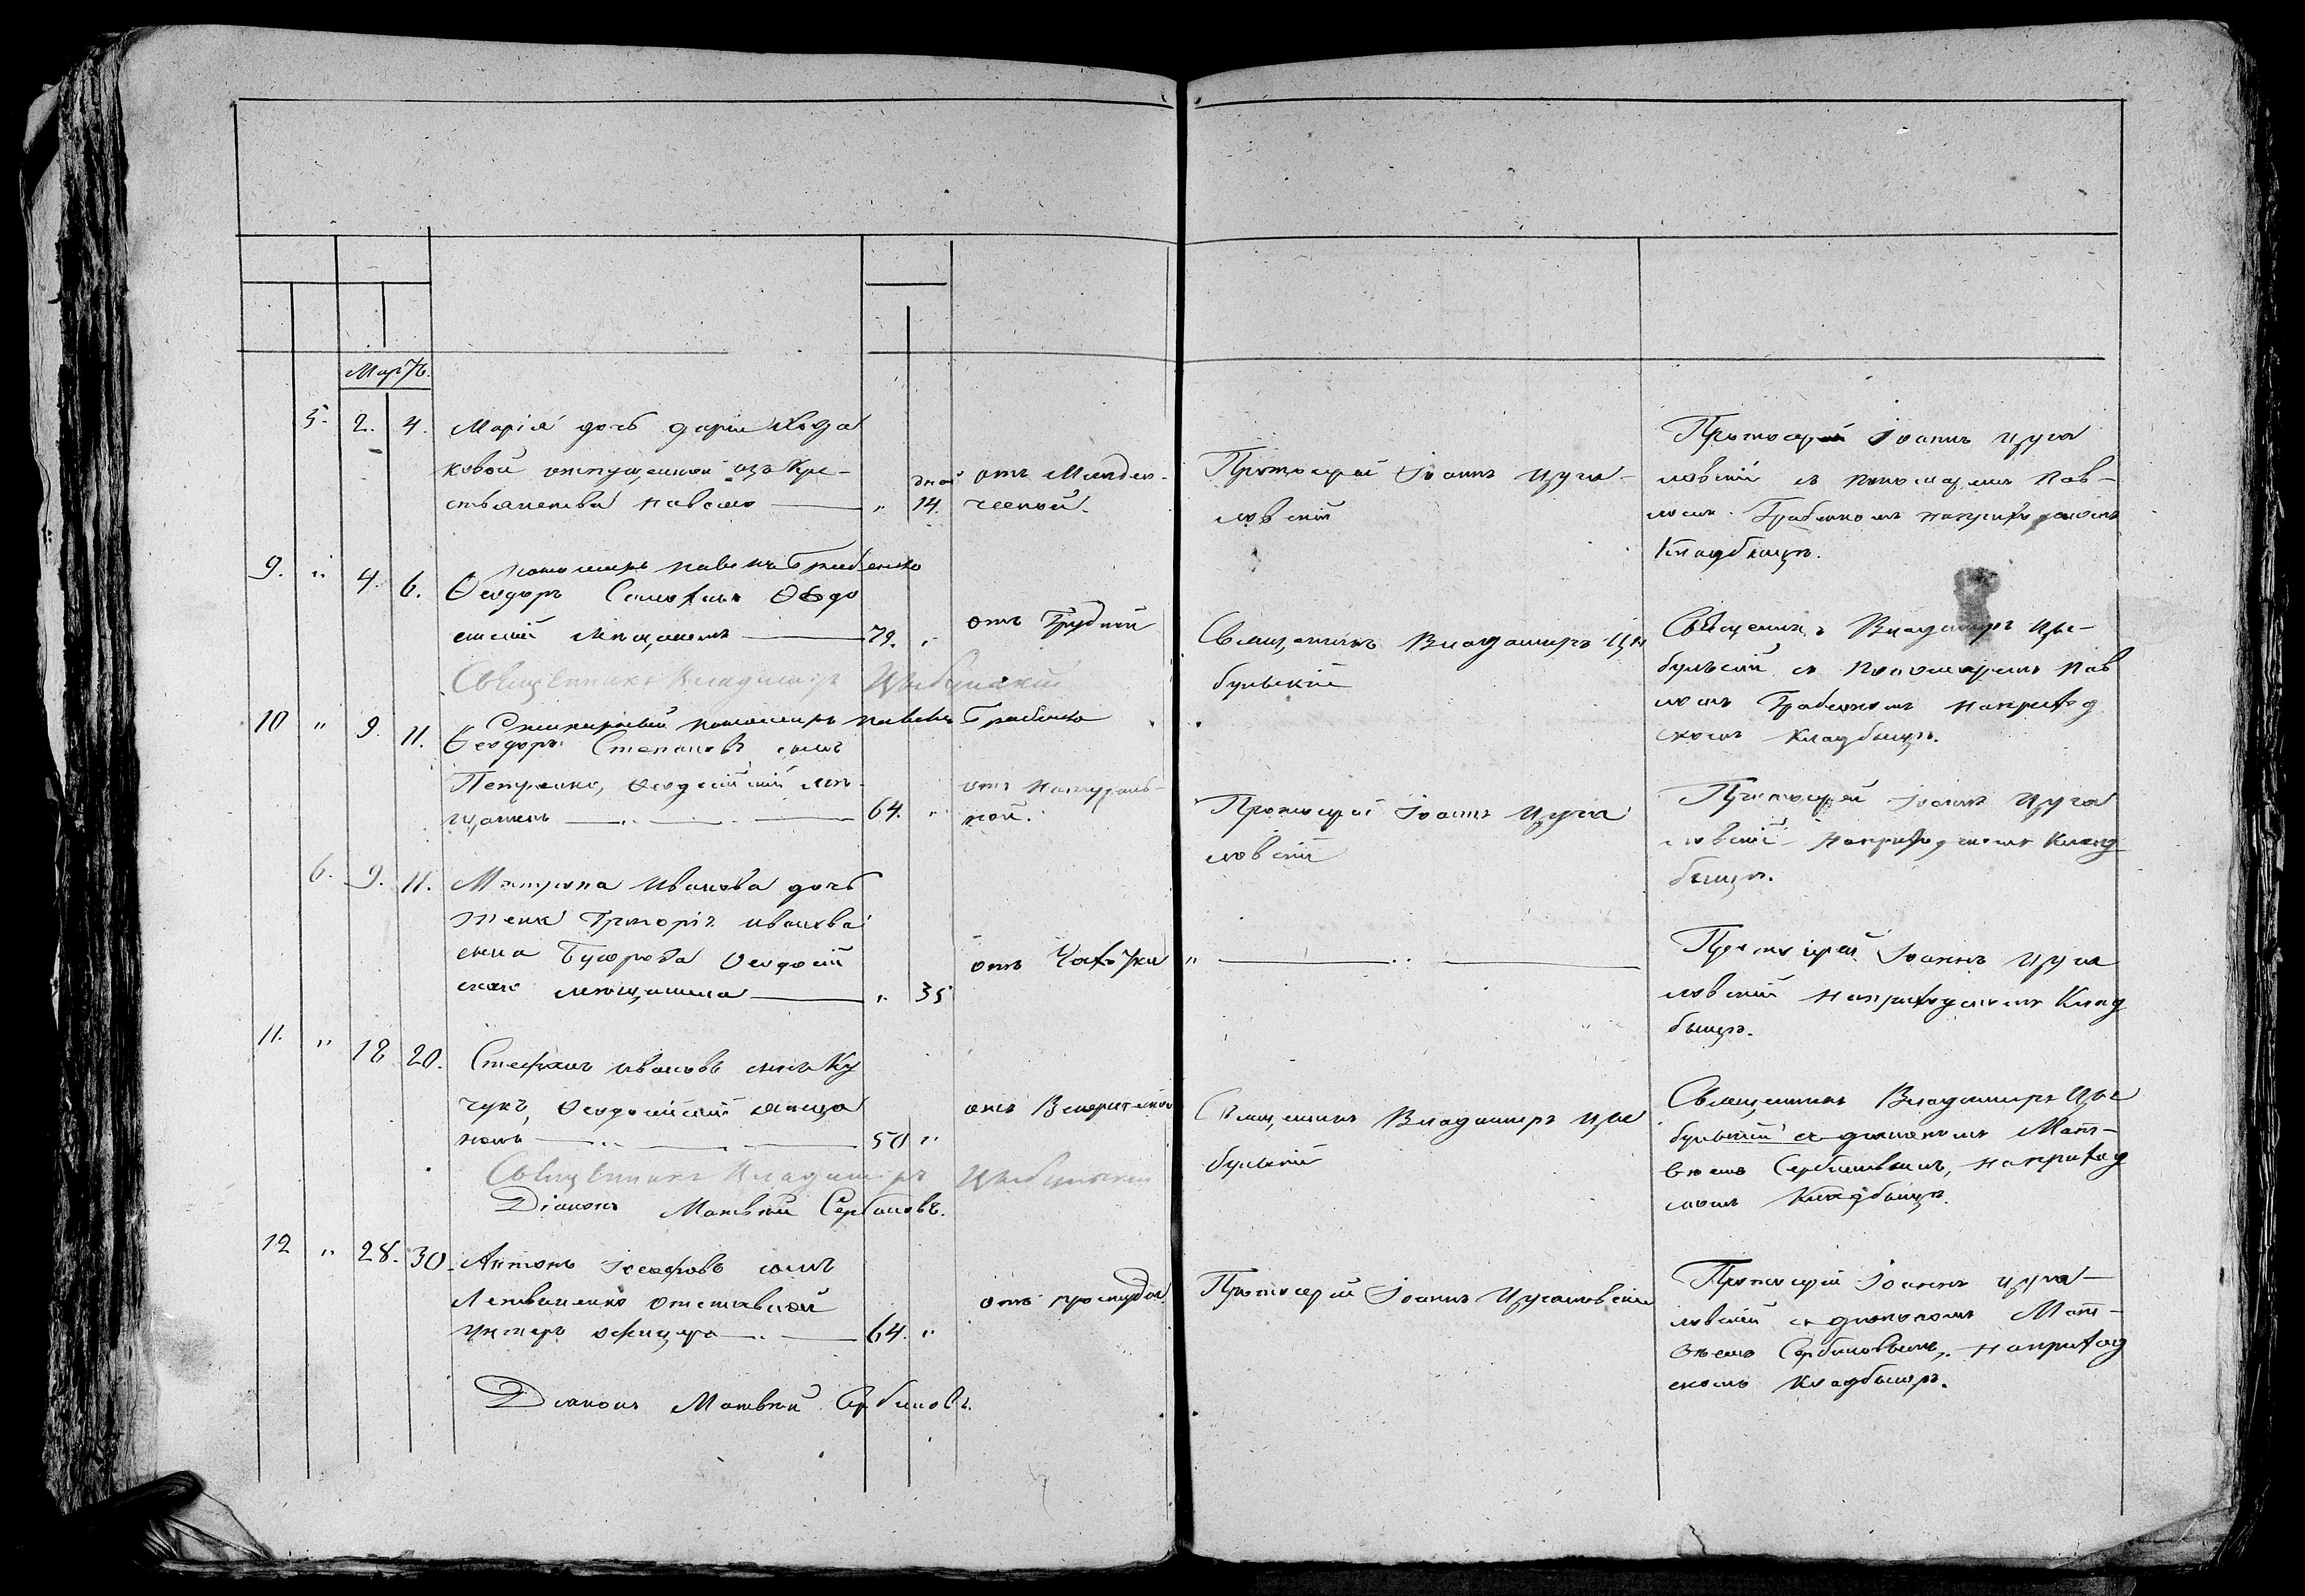 Мартъ.
5. 2. 4. Марія дочь Даріи Коза
ковой отпущенной изъ Кре-
стьянства навсегда — „ дней 14.
отъ Младен-
ческой.
Протоіерей Іоаннъ Цуга-
новскій
Протоіерей Іоаннъ Цуга
новскій съ пономаремъ Пав-
ломъ Грабенкомъ на приходскомъ
Кладбищѣ.
пономарь Павелъ Грабенко
9. „ 4. 6. Ѳеодоръ Ѳеодо
сійскій мѣщанинъ — 79. „
отъ Грудной
Священникъ Владимиръ Цы
бульскій
Священникъ Владимиръ Цы-
бульскій съ Пономаремъ Пав
ломъ Грабенкомъ на приход
скомъ Кладбищѣ.
Священникъ Владимиръ Цыбульскій
пономарь Павелъ Грабенко
10 „ 9. 11. Ѳеодоръ Степановъ сынъ
Петренко, Ѳеодосійскій мѣ-
щанинъ — 64. „
отъ натураль-
ной.
Протоіерей Іоаннъ Цуга
новскій
Протоіерей Іоаннъ Цуга
новскій на приходскомъ Клад
бищѣ.
6. 9. 11. Матрона Иванова дочь
жена Григорія Иванова
сына Ѳеодосій
скаго мѣщанина — „ 35
отъ Чахотки
„ — „ —
Протоіерей Іоаннъ Цуга
новскій на приходскомъ Клад
бищѣ.
11. „ 18 20. Стефанъ Ивановъ сынъ Ку
чукъ, Ѳеодосійскій мѣща
нинъ — 50 „
отъ Венерической
Священникъ Владимиръ Цы
бульскій
Священникъ Владимиръ Цы
бульскій съ діакономъ Мат-
вѣемъ Сербиновымъ, на приход
скомъ Кладбищѣ.
Священникъ Владимиръ Цыбульскій
Діаконъ Матвѣй Сербиновъ.
12 „ 28. 30. Антонъ Іосифовъ сынъ
Литвиненко отставной
унтеръ офицеръ — 64. „
отъ простуды.
Протоіерей Іоаннъ Цугановскій
Протоіерей Іоаннъ Цуга-
новскій съ діакономъ Мат-
вѣемъ Сербиновымъ, на приход
скомъ Кладбищѣ.
Діаконъ Матвѣй Сербиновъ.